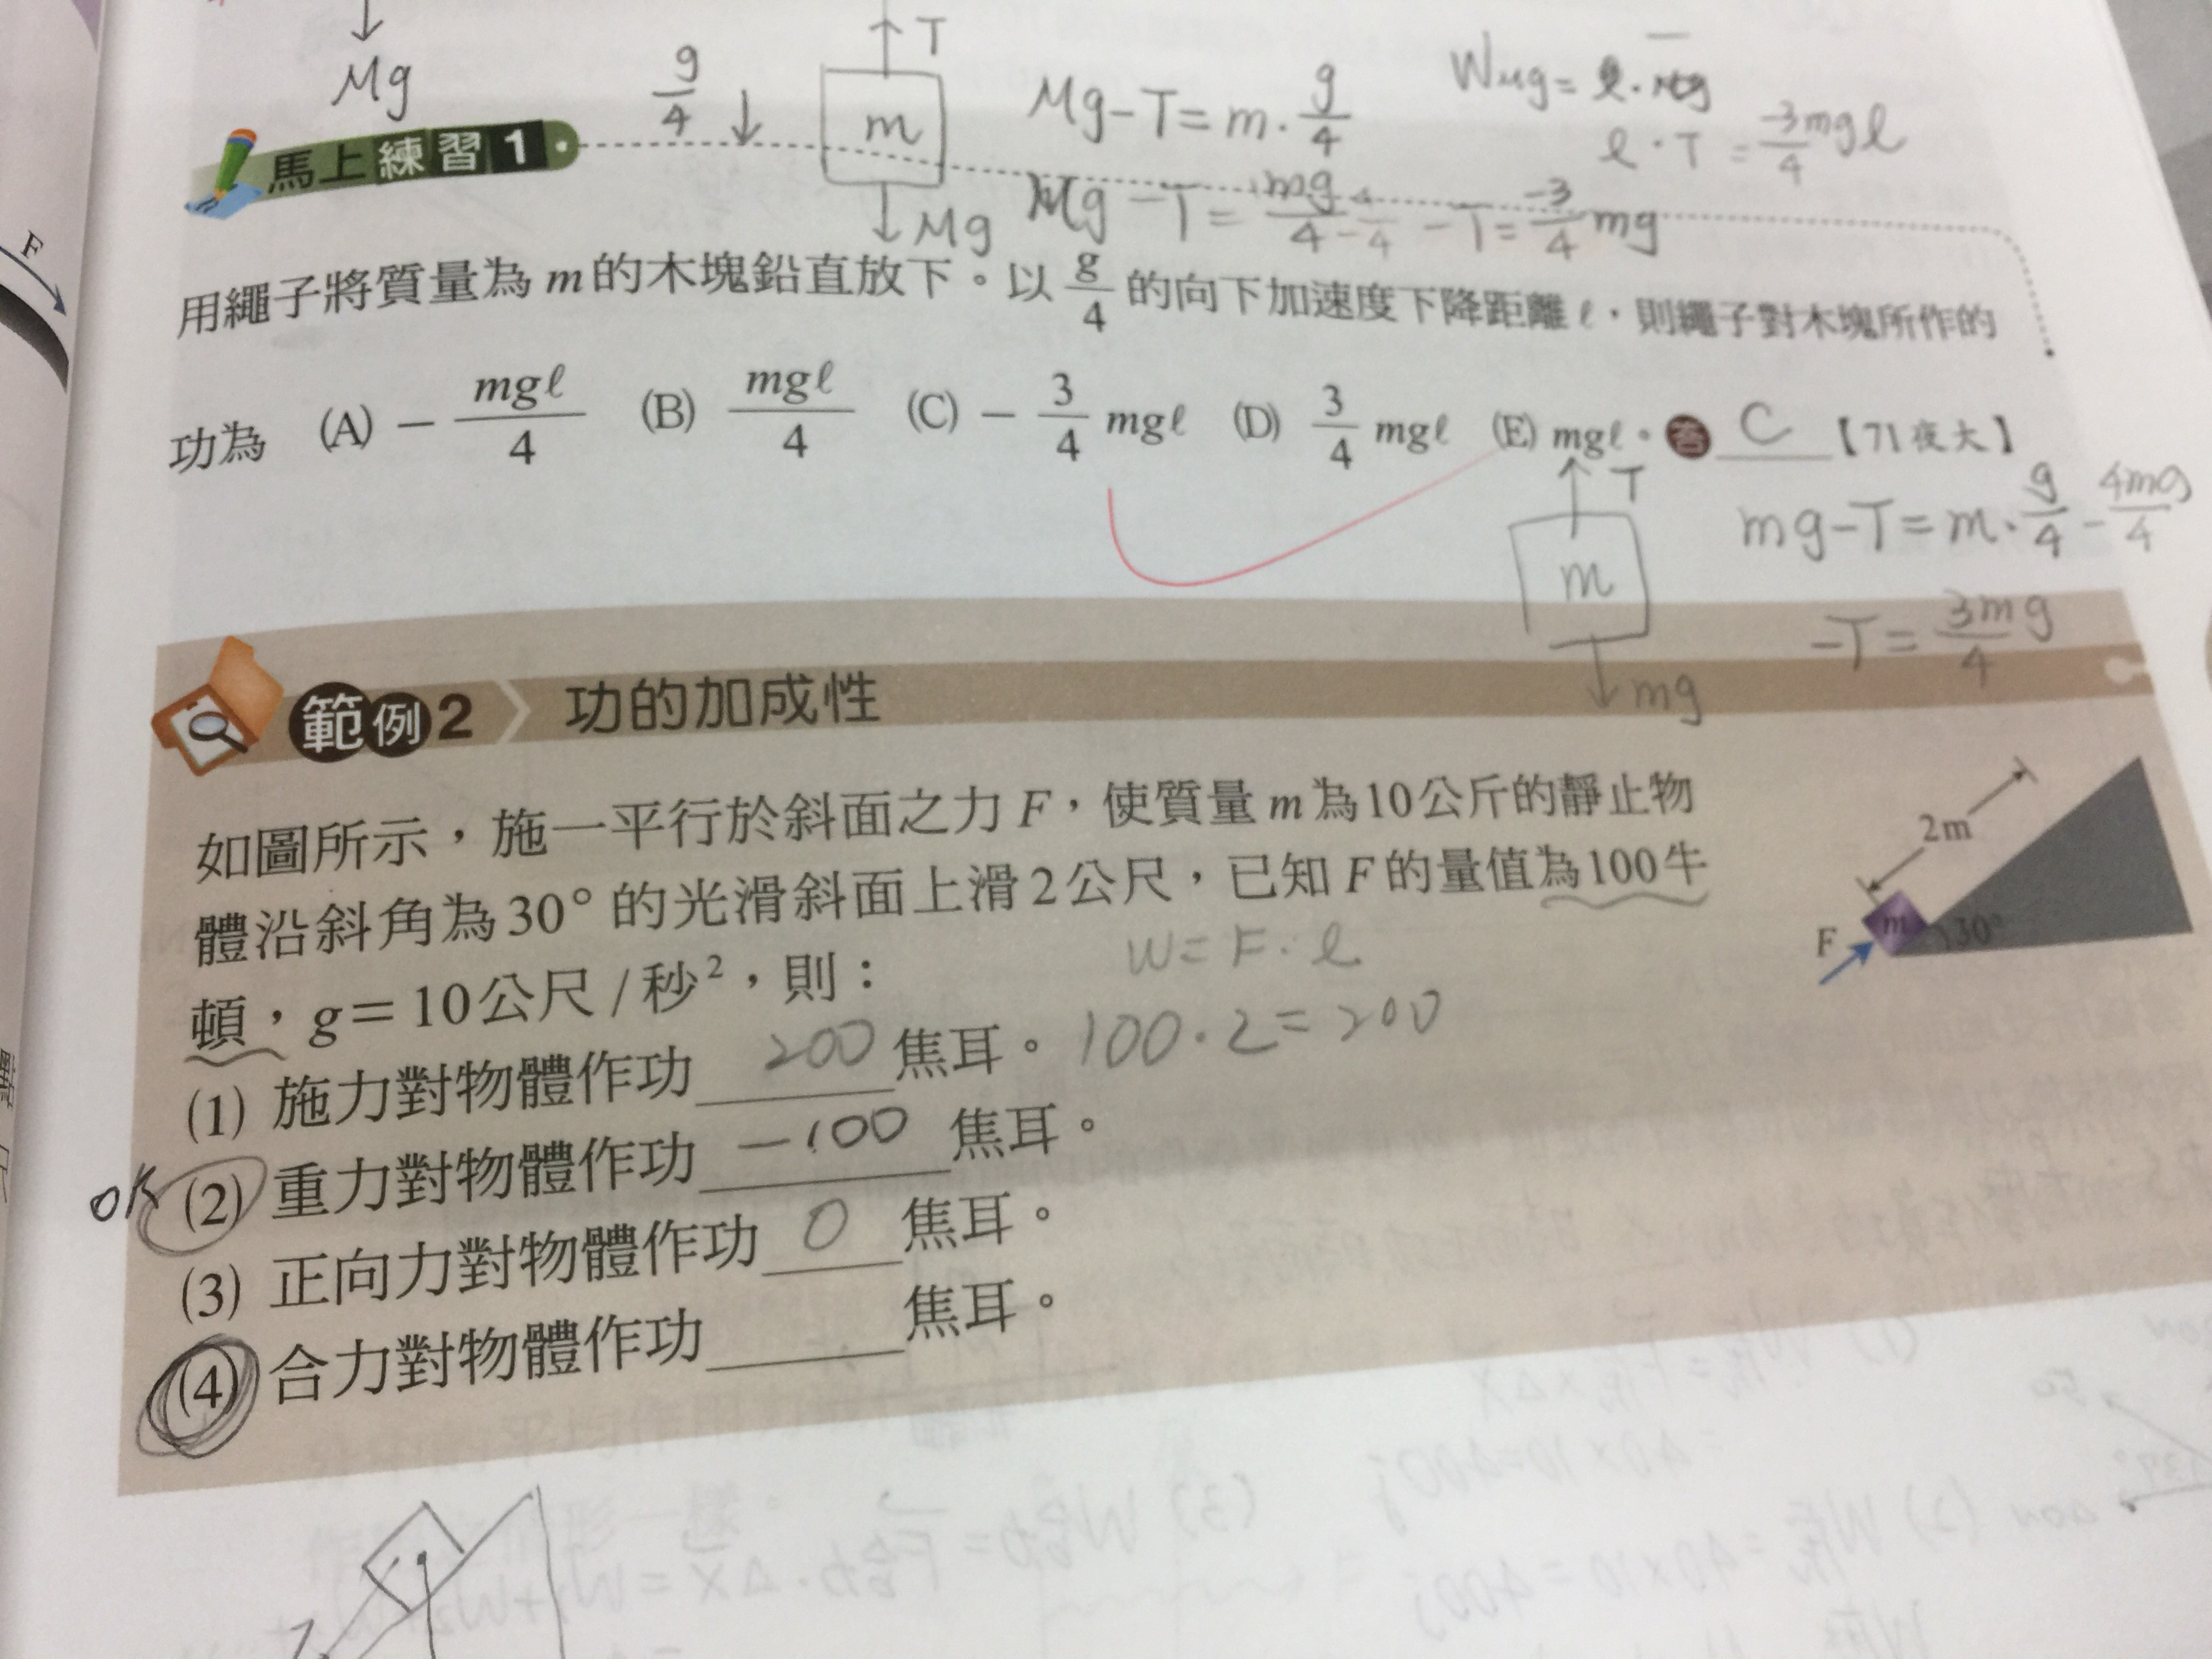 Mg
g/4 ↓
T
m
Mg
Mg-T=m·g/4
Mg-T=mg/4-4/4 -T=-3/4mg
Wмg=ℓ·Mg
ℓ·T=-3/4mgℓ
F
馬上練習1
用繩子將質量為m的木塊鉛直放下。以g/4的向下加速度下降距離ℓ,則繩子對木塊所作的
功為 (A) -mgℓ/4 (B) mgℓ/4 (C) -3/4mgℓ (D) 3/4mgℓ (E) mgℓ。答 C 【71夜大】
T
m
mg
mg-T=m·g/4-4mg/4
-T=3mg/4
範例2 功的加成性
如圖所示,施一平行於斜面之力F,使質量m為10公斤的靜止物
體沿斜角為30°的光滑斜面上滑2公尺,已知F的量值為100牛
頓,g=10公尺/秒²,則:
W=F·ℓ
(1) 施力對物體作功 200 焦耳。 100·2=200
OK (2) 重力對物體作功 -100 焦耳。
(3) 正向力對物體作功 0 焦耳。
(4) 合力對物體作功 焦耳。
2m
m
30°
F